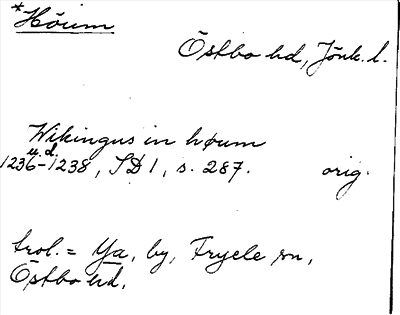 *Höum
Östbo hd, Jönk. l.
Wikingus in høum
u.d.
1236-1238, SD 1, s. 287. orig.
trol. = Ya, by, Fryele sn,
Östbo hd.